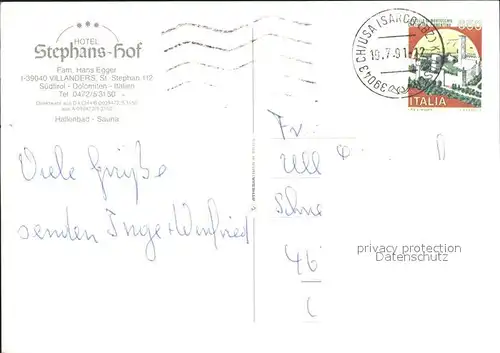 HOTEL
Stephans-Hof
Fam. Hans Egger
I-39040 VILLANDERS, St. Stephan 112
Südtirol - Dolomiten - Italien
Tel. 0472/53150
Hallenbad - Sauna
Viele Grüße
senden Inge + Winfried
39043 CHIUSA (SARCO (BZ)
19.7.91-12
850
ITALIA
Fr
Ull
Schne
46
privacy protection
Datenschutz